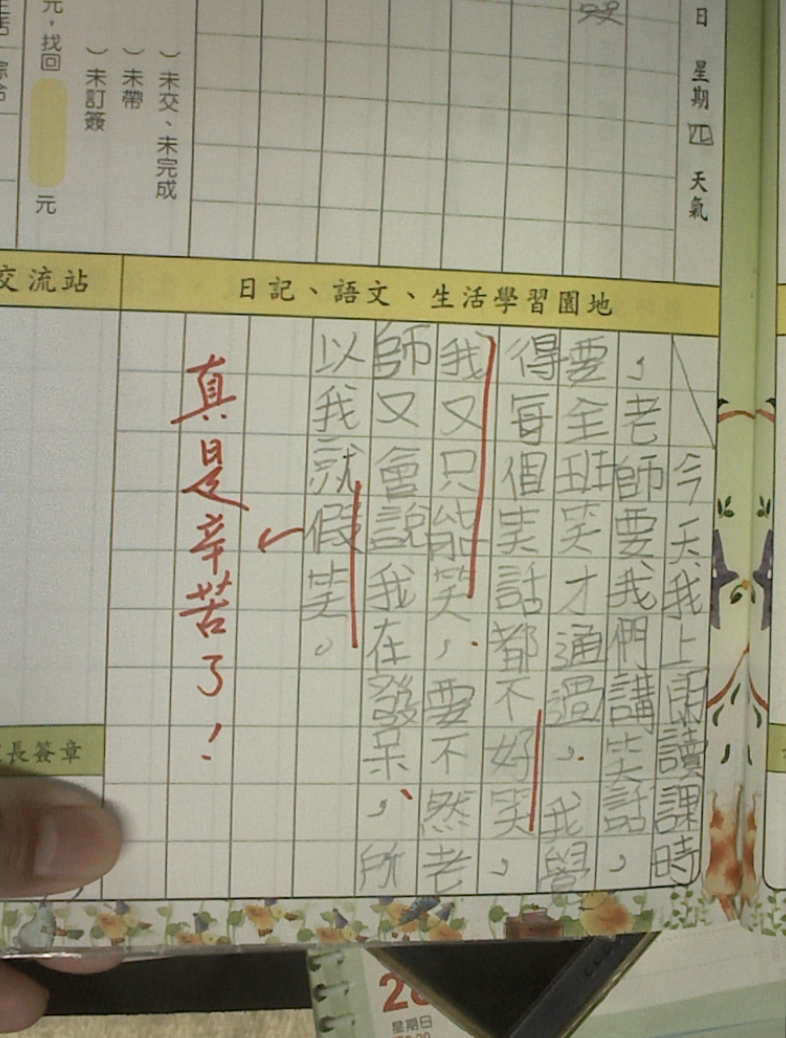 日 星期四 天氣
）未交、未完成
）未帶
）未訂簽
元，找回 元
日記、語文、生活學習園地
交流站
今天我上閱讀課時
，老師要我們講笑話，
要全班笑才通過，我覺
得每個笑話都不好笑，
我又只能笑，要不然老
師又會說我在發呆，所
以我就假笑。
真是辛苦了！
長簽章
星期日